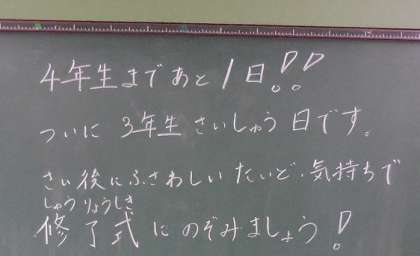 4年生まであと1日!!
ついに 3年生 さいしゅう 日です。
さい後にふさわしい たいど・気持ちで
しゅうりょうしき
修了式 にのぞみましょう!